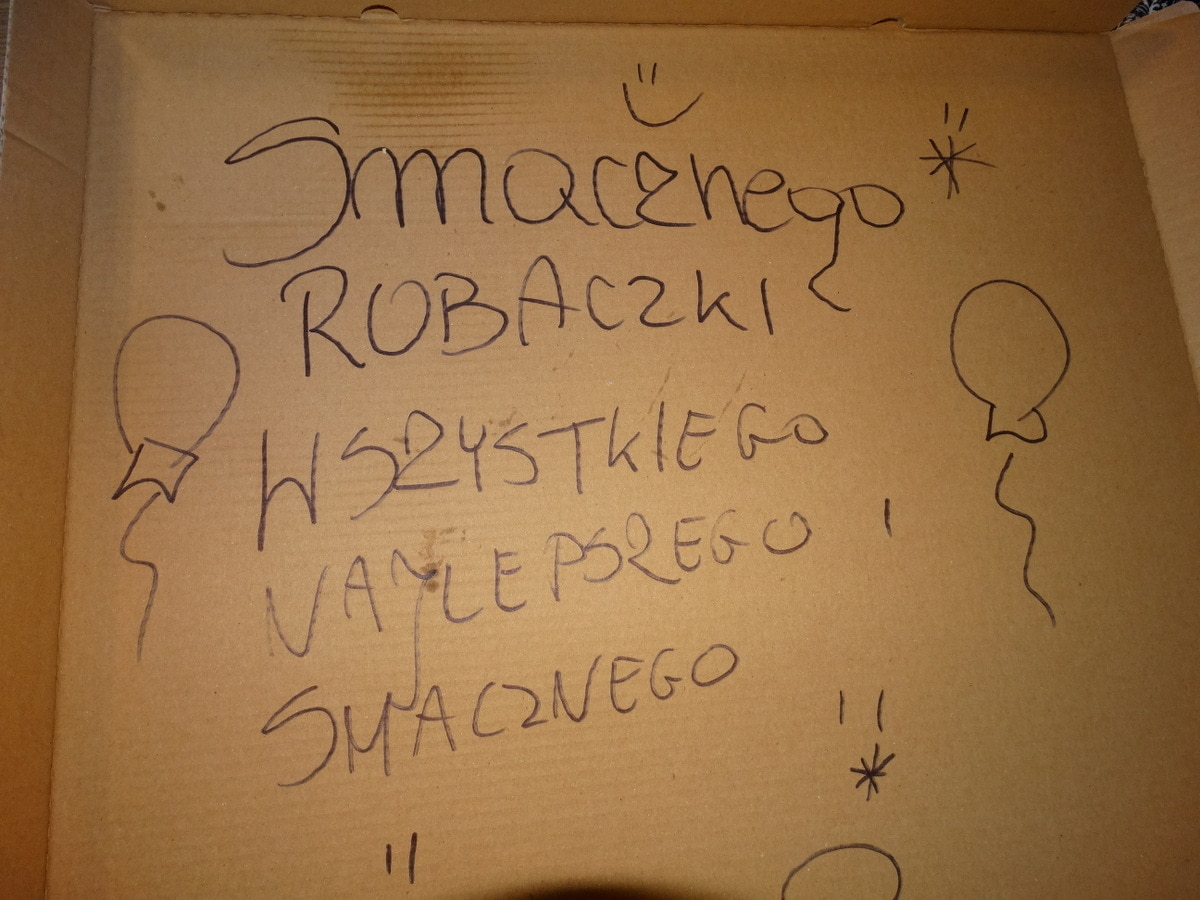 Smacznego
ROBACZKI
WSZYSTKIEGO
NAJLEPSZEGO
SMACZNEGO